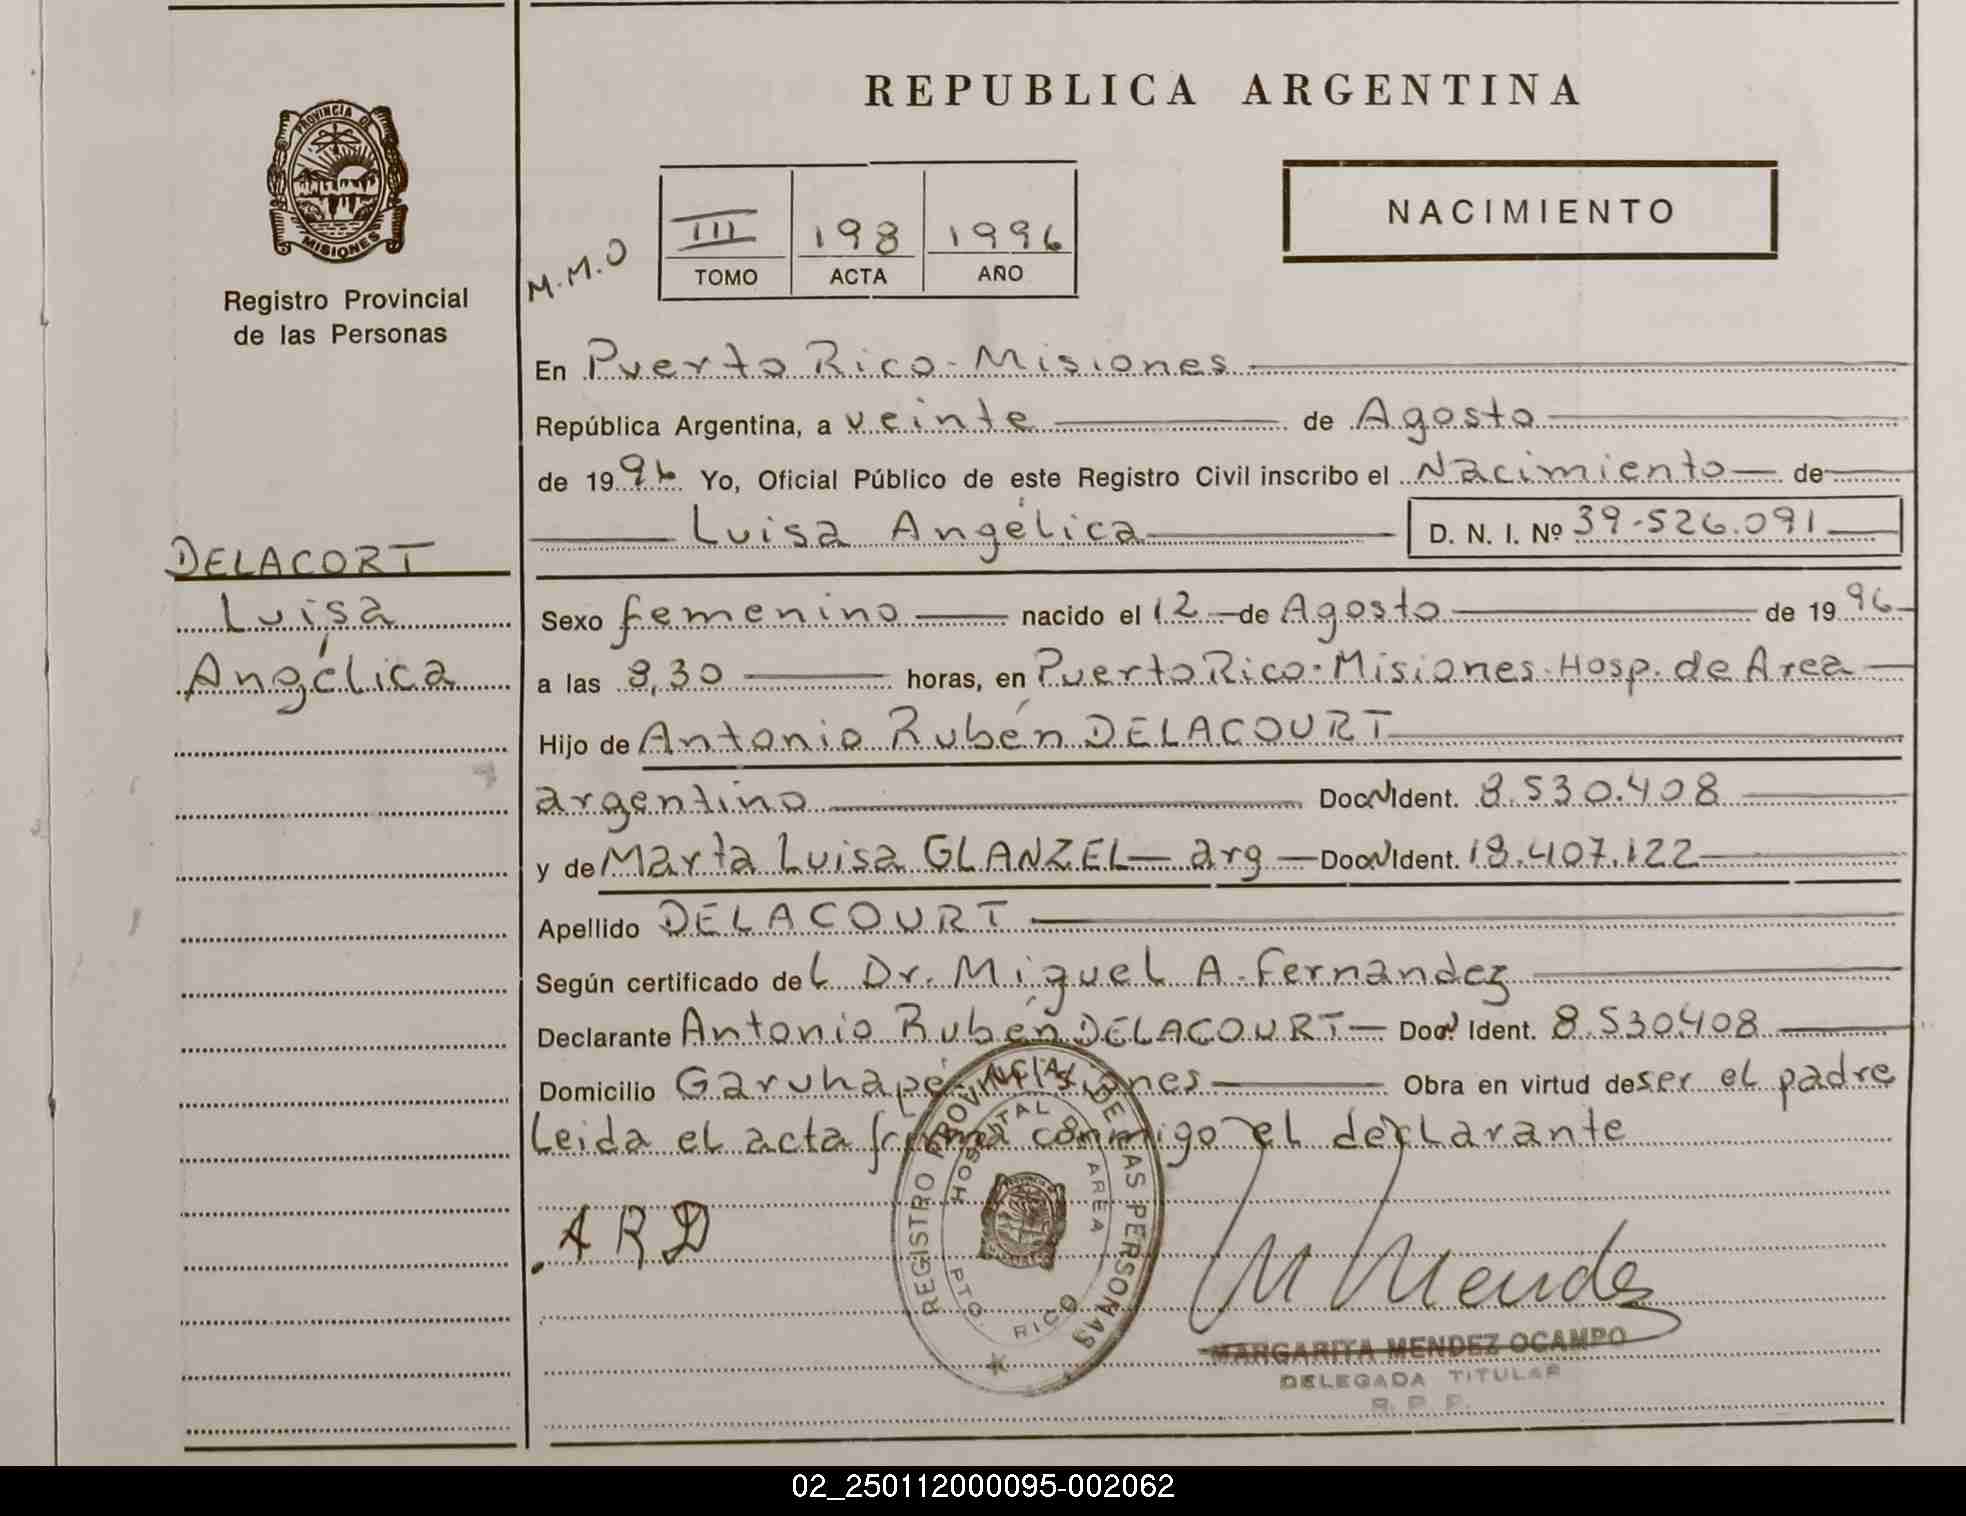 REPUBLICA ARGENTINA
PROVINCIA DE
MISIONES
Registro Provincial
de las Personas
M.M.O
III 198 1996
TOMO ACTA AÑO
NACIMIENTO
En Puerto Rico - Misiones
República Argentina, a veinte de Agosto
de 1996 Yo, Oficial Público de este Registro Civil inscribo el Nacimiento de
Luisa Angélica D. N. I. Nº 39.526.091
DELACORT
Luisa
Angélica
Sexo femenino nacido el 12 de Agosto de 1996
a las 8,30 horas, en Puerto Rico - Misiones - Hosp. de Area
Hijo de Antonio Rubén DELACOURT
argentino Doc. N Ident. 8.530.408
y de Marta Luisa GLANZEL - arg - Doc. N Ident. 18.407.122
Apellido DELACOURT
Según certificado del Dr. Miguel A. Fernandez
Declarante Antonio Rubén DELACOURT - Doc. N Ident. 8.530408
Domicilio Garuhapé - Misiones Obra en virtud de ser el padre
Leida el acta firma conmigo el declarante
A R D
REGISTRO PROVINCIAL DE LAS PERSONAS
HOSPITAL AREA
PTO. RICO
M Mendez
MARGARITA MENDEZ OCAMPO
DELEGADA TITULAR
R. P. P.
02_250112000095-002062